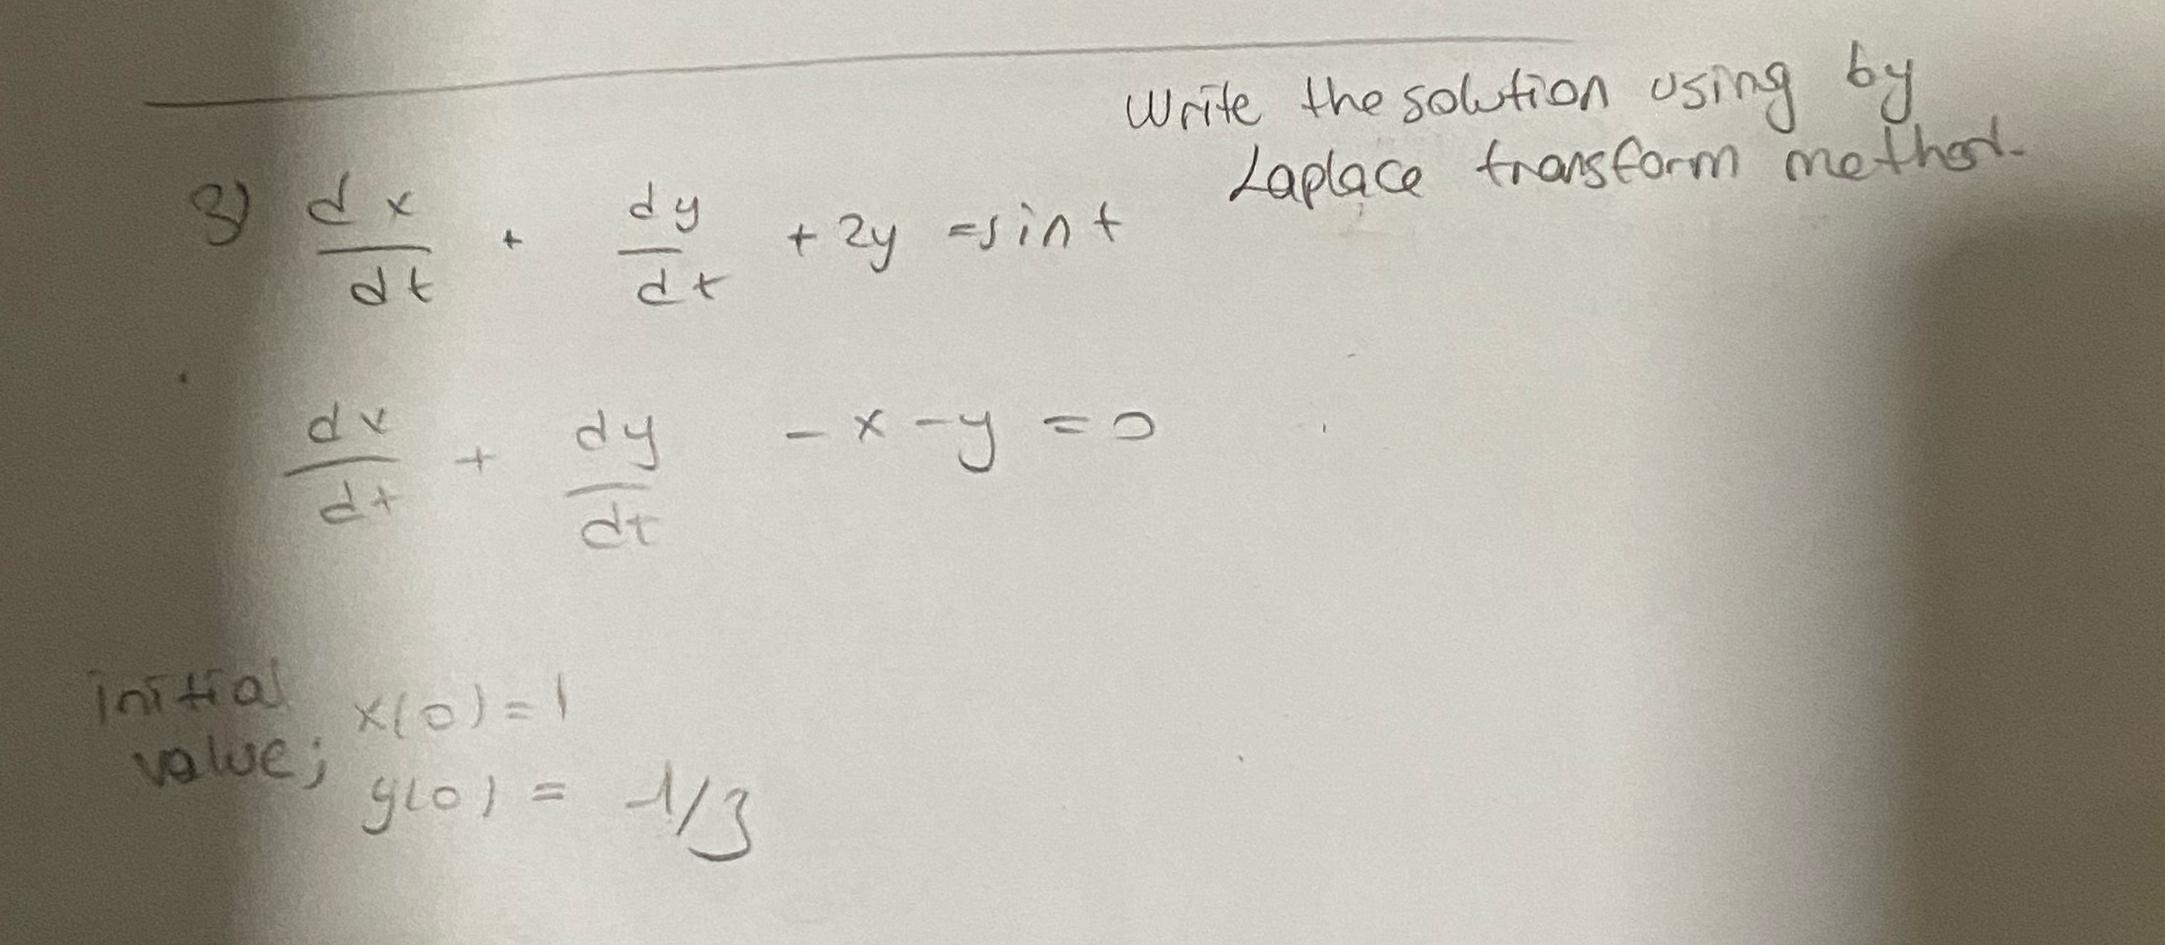 Write the solution using by
Laplace transform method.
3) dx/dt + dy/dt + 2y = sin t
dx/dt + dy/dt - x - y = 0
initial x(0) = 1
value; y(0) = -1/3